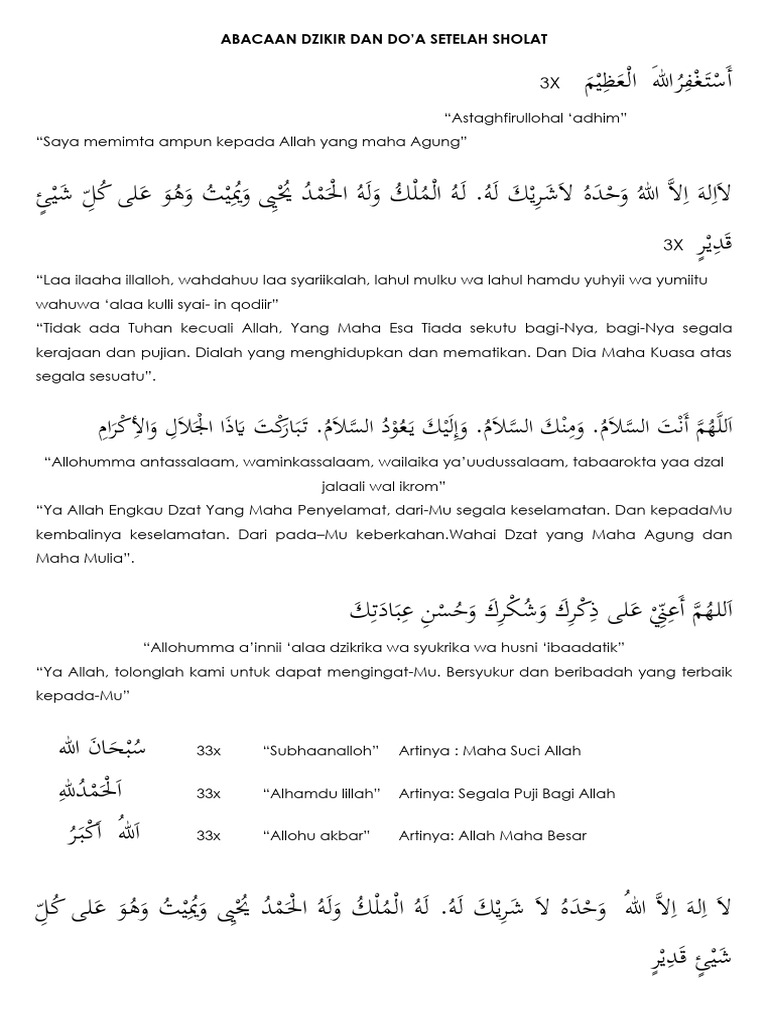 ABACAAN DZIKIR DAN DO’A SETELAH SHOLAT
أَسْتَغْفِرُ اللهَ الْعَظِيْمَ 3X
“Astaghfirullohal ‘adhim”
“Saya memimta ampun kepada Allah yang maha Agung”
لاَاِلهَ اِلاَّ اللهُ وَحْدَهُ لاَشَرِيْكَ لَهُ. لَهُ الْمُلْكُ وَلَهُ الْحَمْدُ يُحْيِى وَيُمِيْتُ وَهُوَ عَلى كُلِّ شَيْئٍ
قَدِيْرٍ 3X
“Laa ilaaha illalloh, wahdahuu laa syariikalah, lahul mulku wa lahul hamdu yuhyii wa yumiitu
wahuwa ‘alaa kulli syai- in qodiir”
“Tidak ada Tuhan kecuali Allah, Yang Maha Esa Tiada sekutu bagi-Nya, bagi-Nya segala
kerajaan dan pujian. Dialah yang menghidupkan dan mematikan. Dan Dia Maha Kuasa atas
segala sesuatu”.
اَللَّهُمَّ أَنْتَ السَّلاَمُ. وَمِنْكَ السَّلاَمُ. وَإِلَيْكَ يَعُوْدُ السَّلاَمُ. تَبَارَكْتَ يَاذَا الْجَلاَلِ وَالْأِكْرَامِ
“Allohumma antassalaam, waminkassalaam, wailaika ya’uudussalaam, tabaarokta yaa dzal
jalaali wal ikrom”
“Ya Allah Engkau Dzat Yang Maha Penyelamat, dari-Mu segala keselamatan. Dan kepadaMu
kembalinya keselamatan. Dari pada–Mu keberkahan.Wahai Dzat yang Maha Agung dan
Maha Mulia”.
اَللهُمَّ أَعِنِّيْ عَلى ذِكْرِكَ وَشُكْرِكَ وَحُسْنِ عِبَادَتِكَ
“Allohumma a’innii ‘alaa dzikrika wa syukrika wa husni ‘ibaadatik”
“Ya Allah, tolonglah kami untuk dapat mengingat-Mu. Bersyukur dan beribadah yang terbaik
kepada-Mu”
سُبْحَانَ الله 33x “Subhaanalloh” Artinya : Maha Suci Allah
اَلْحَمْدُلِلهِ 33x “Alhamdu lillah” Artinya: Segala Puji Bagi Allah
اَللهُ أَكْبَرُ 33x “Allohu akbar” Artinya: Allah Maha Besar
لاَ اِلهَ اِلاَّ اللهُ وَحْدَهُ لاَ شَرِيْكَ لَهُ. لَهُ الْمُلْكُ وَلَهُ الْحَمْدُ يُحْيِى وَيُمِيْتُ وَهُوَ عَلى كُلِّ
شَيْئٍ قَدِيْرٍ